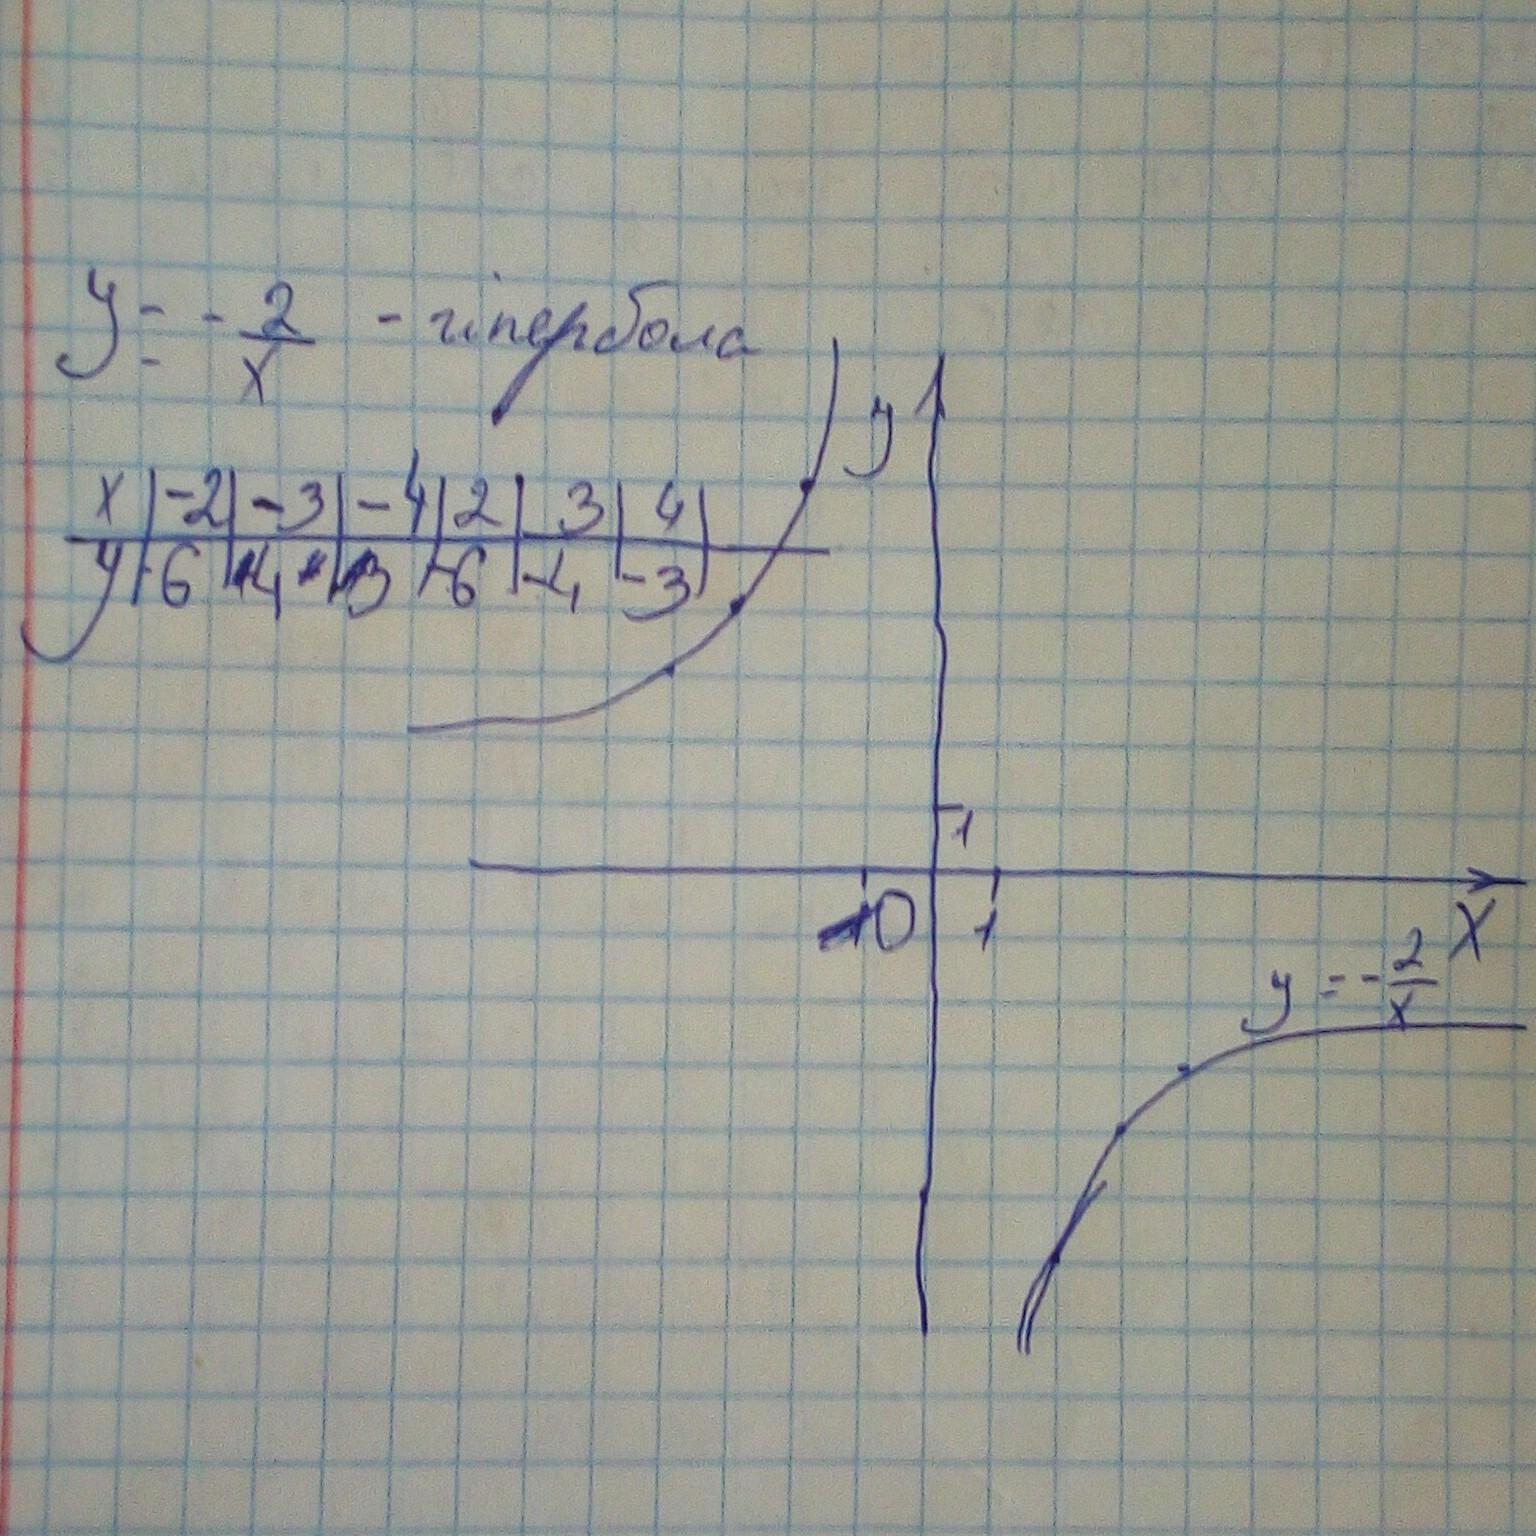 y = - 2/x - гіпербола
x | -2 | -3 | -4 | 2 | 3 | 4 |
y | 6 | 4 | 3 | -6 | -4 | -3 |
y
1
0 1 x
y = - 2/x